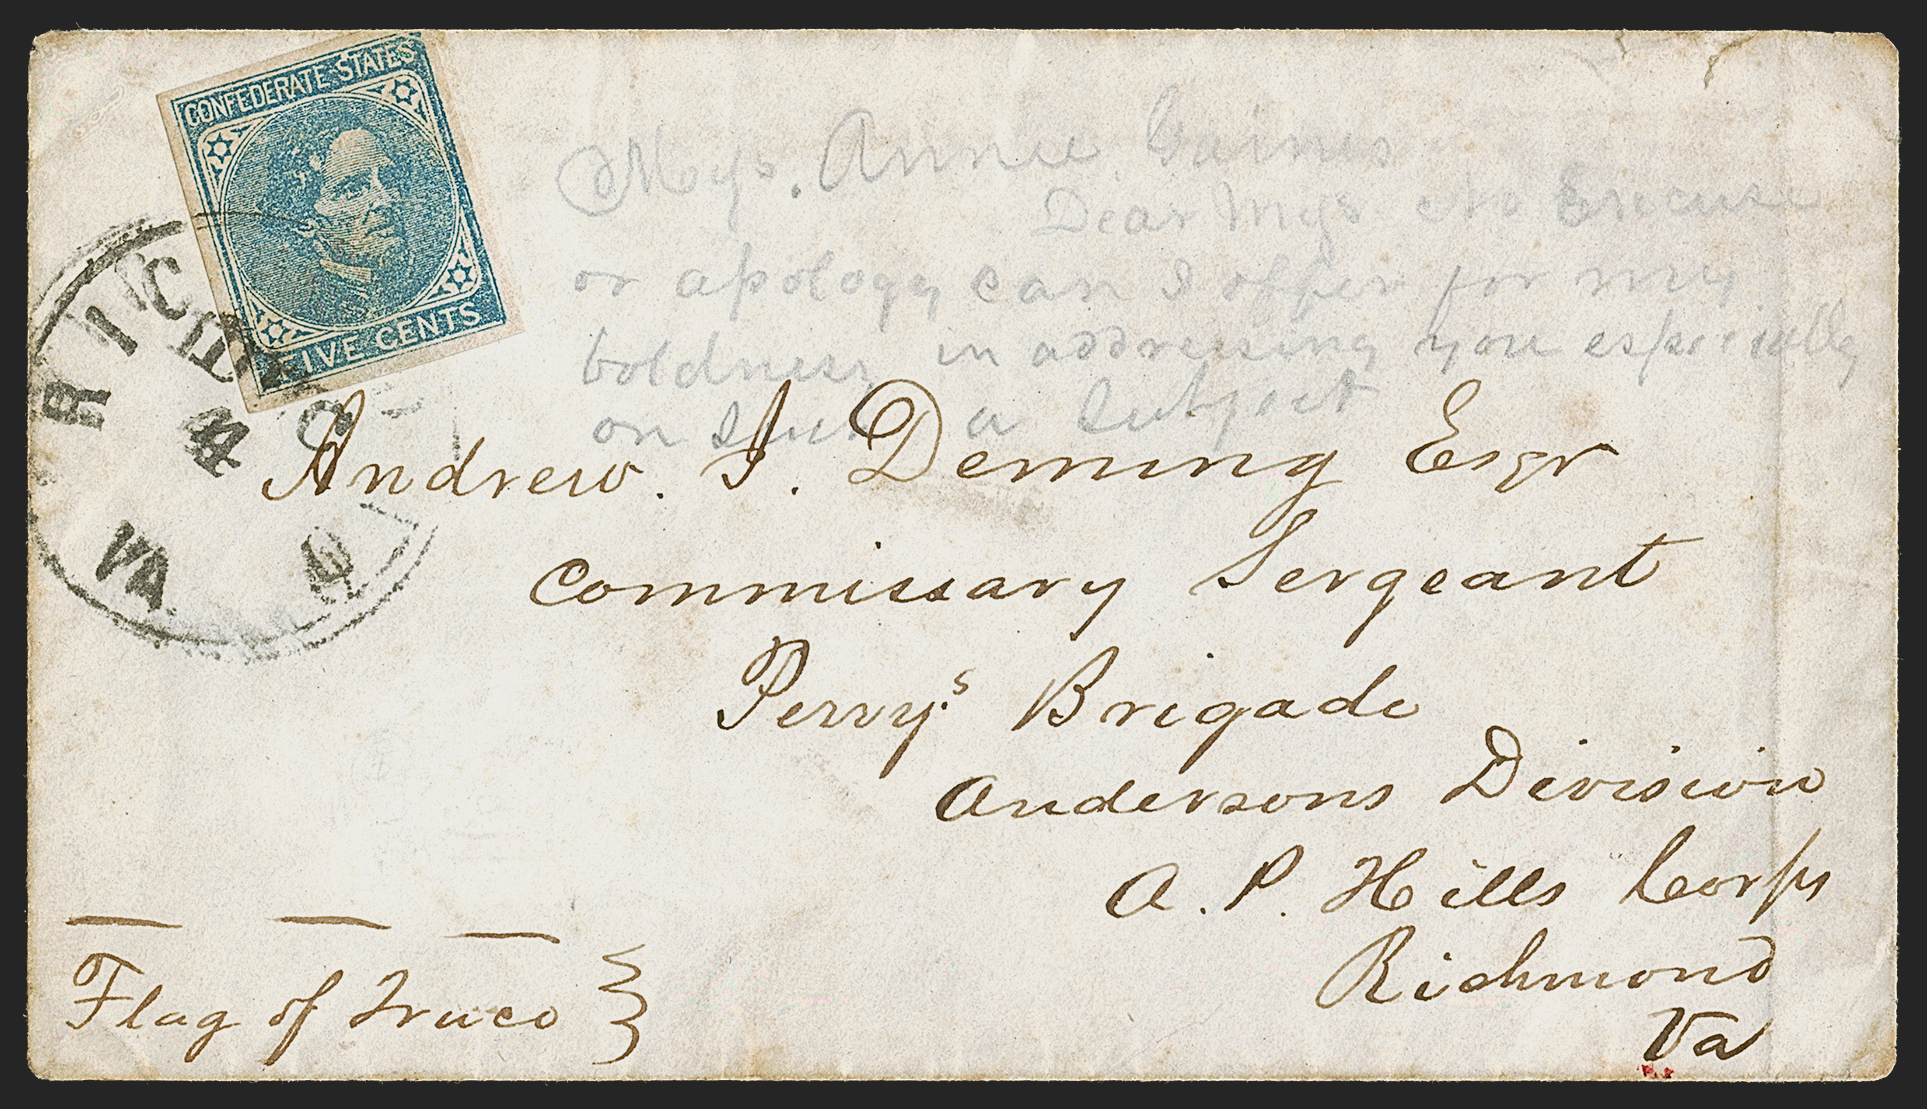 CONFEDERATE STATES
FIVE CENTS
RICHMOND
VA
Mys. Annie Gaines
Dear Mys No Excuse
or apology can I offer for my
boldness in addressing you especially
on such a subject
Andrew. J. Deming Esqr
Commissary Sergeant
Perry's Brigade
Andersons Division
A. P. Hills Corps
Richmond
Va
Flag of Truce